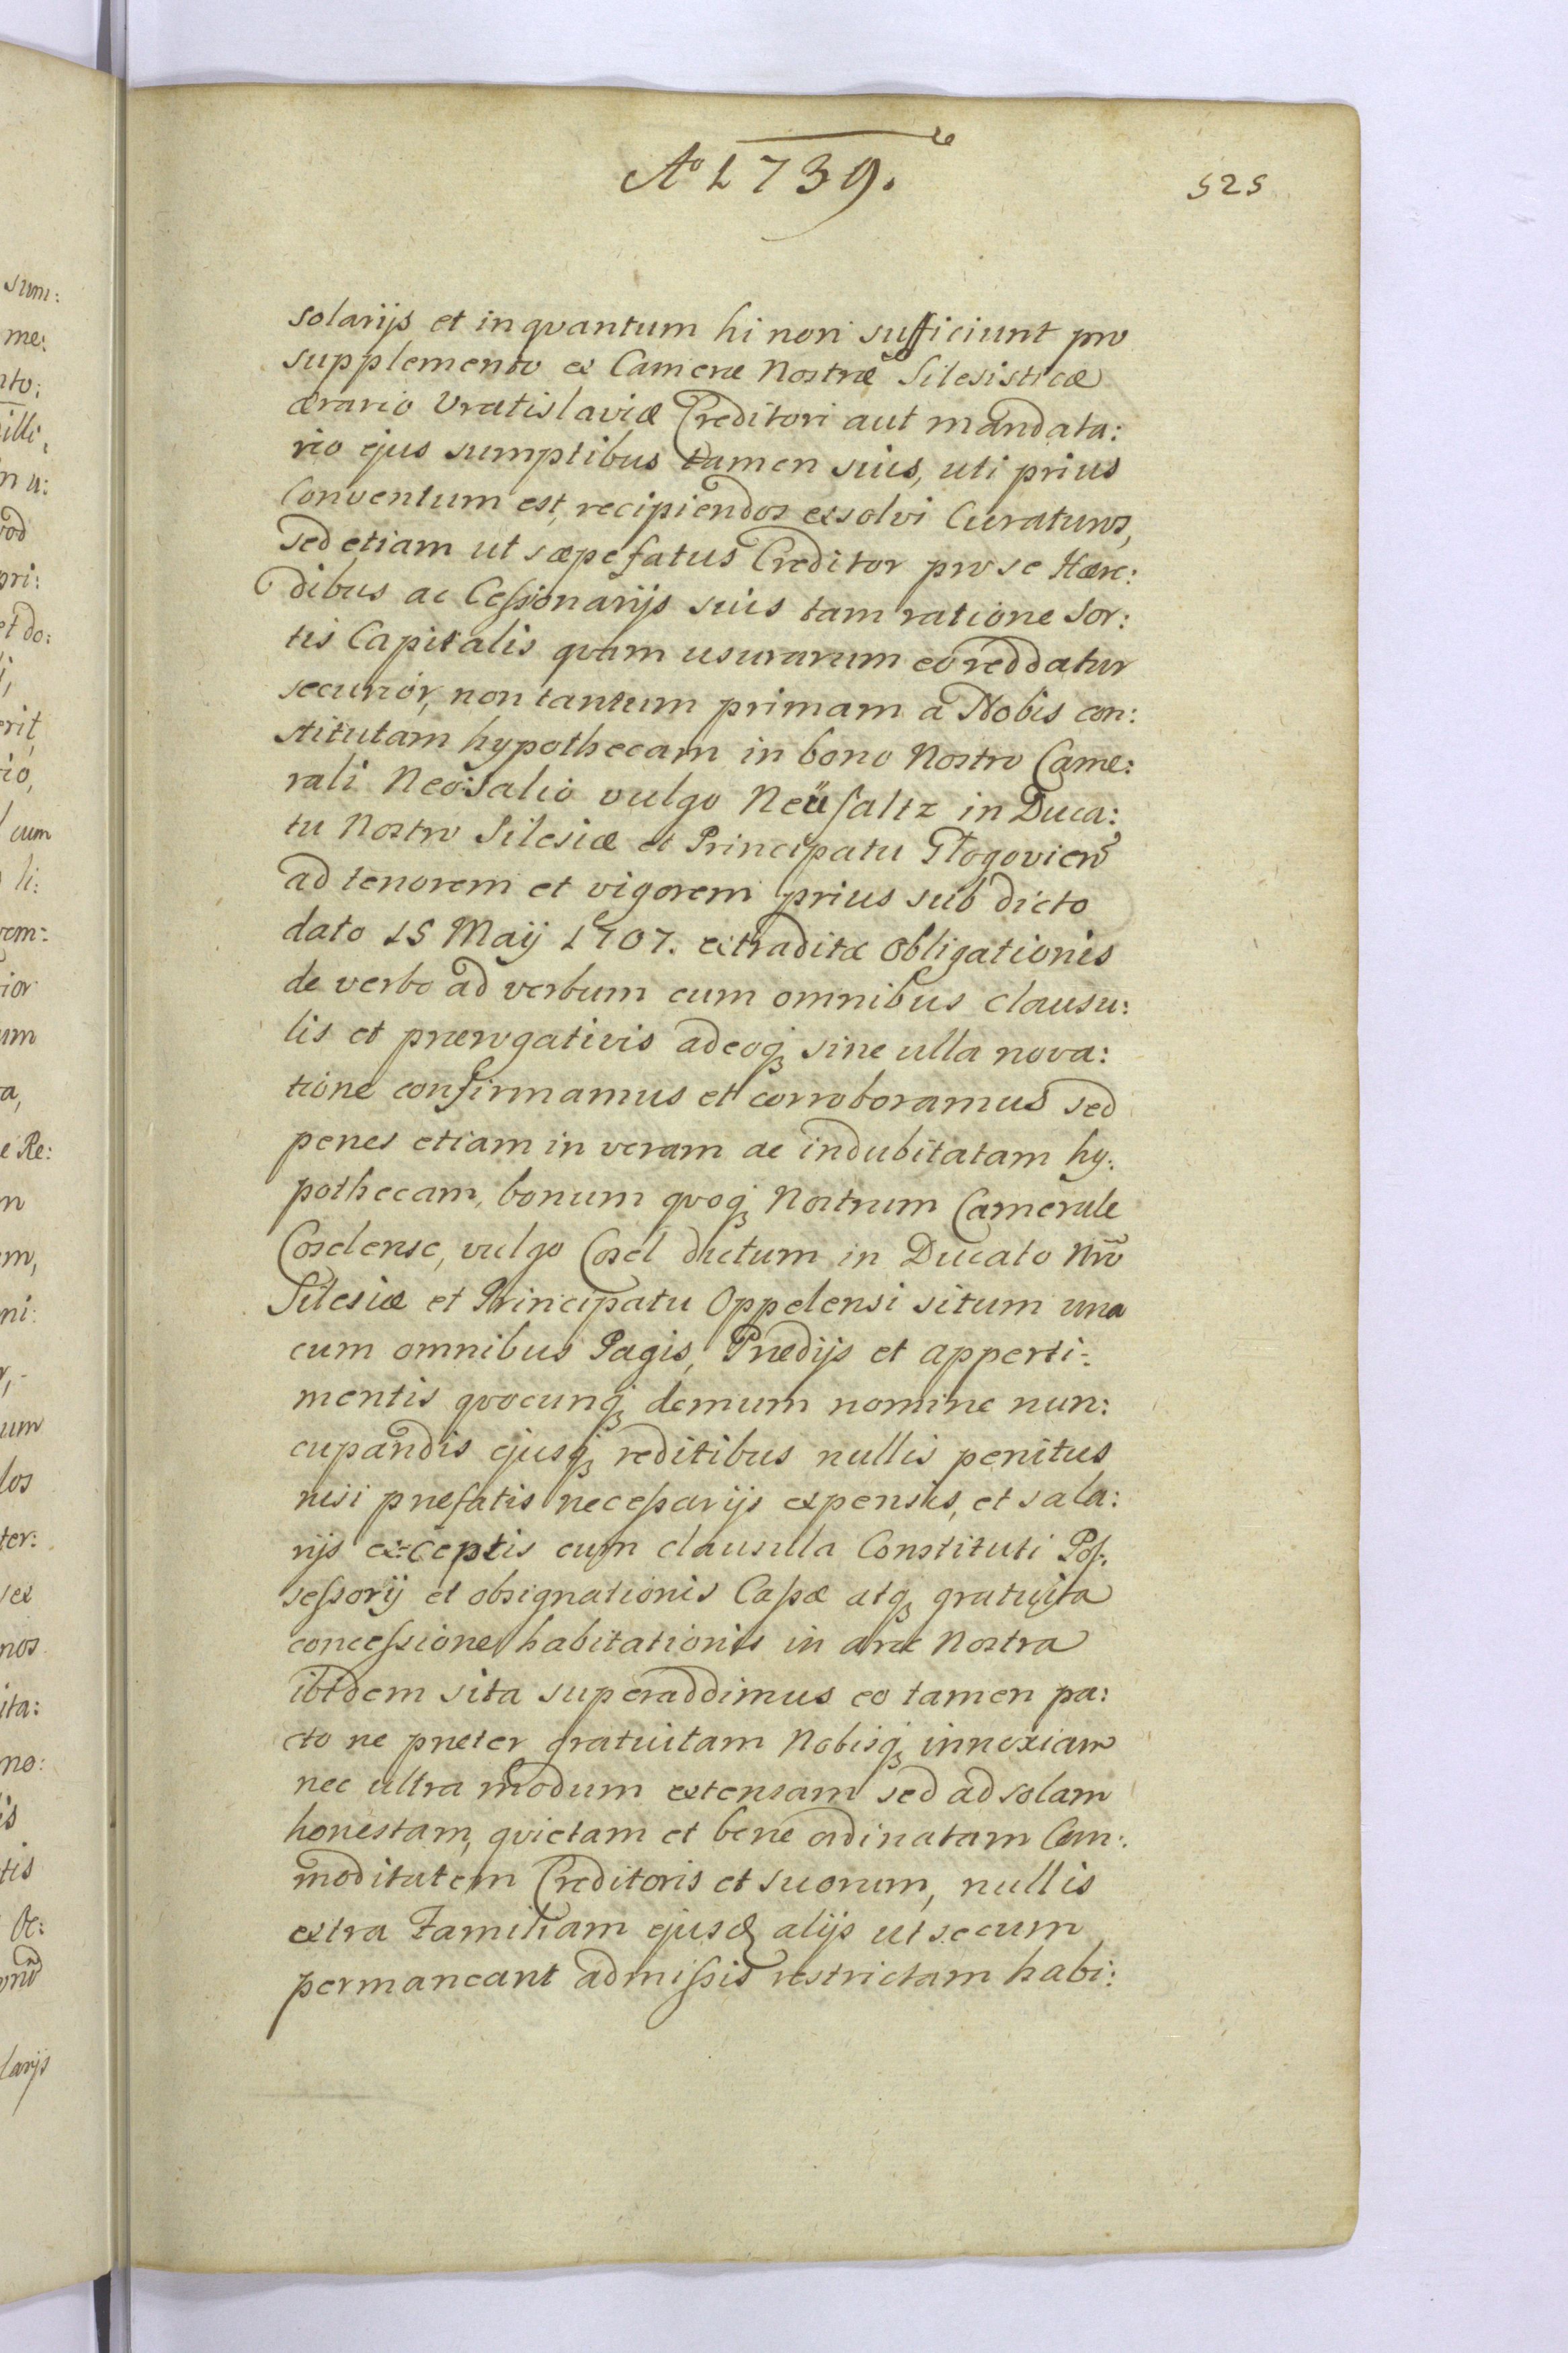 Aº 1739.
525
solarijs et inqvantum hi non sufficiunt pro
supplemento ex Cameræ Nostræ Silesisticæ
ærario Vratislaviæ Creditori aut mandata:
rio ejus sumptibus tamen suis, uti prius
Conventum est, recipiendos exsolvi Curaturos,
sed etiam ut sæpefatus Creditor pro se Hære:
dibus ac Cessionarijs suis tam ratione Sor:
tis Capitalis qvam usurarum eo reddatur
securior, non tantum primam a Nobis con:
stitutam hypothecam in bono Nostro Came:
rali Neosalio vulgo Neüsaltz in Duca:
tu Nostro Silesiæ et Principatu Glogovien
ad tenorem et vigorem prius sub dicto
dato 15 Maij 1707. extraditæ Obligationis
de verbo ad verbum cum omnibus clausu:
lis et prærogativis adeoq₃ sine ulla nova:
tione confirmamus et corroboramus sed
penes etiam in veram ac indubitatam hy:
pothecam, bonum qvoq₃ Nostrum Camerale
Coselense, vulgo Cosel dictum in Ducato Nrō
Silesiæ et Principatu Oppelensi situm una
cum omnibus Pagis, Prædijs et apperti:
mentis qvocunq₃ demum nomine nun:
cupandis ejusq₃ reditibus nullis penitus
nisi præfatis necessarijs expensis, et sala:
rijs exceptis cum clausula Constituti Pos:
sessorij et obsignationis Cassæ atq₃ gratuita
concessione habitationis in arce Nostra
ibidem sita superaddimus eo tamen pa:
cto ne præter gratuitam Nobisq₃ innoxiam
nec ultra modum extensam sed ad solam
honestam, qvietam et bene ordinatam Com:
moditatem Creditoris et suorum, nullis
extra Familiam ejusq₃ alijs ut secum
permaneant admissis restrictam habi: